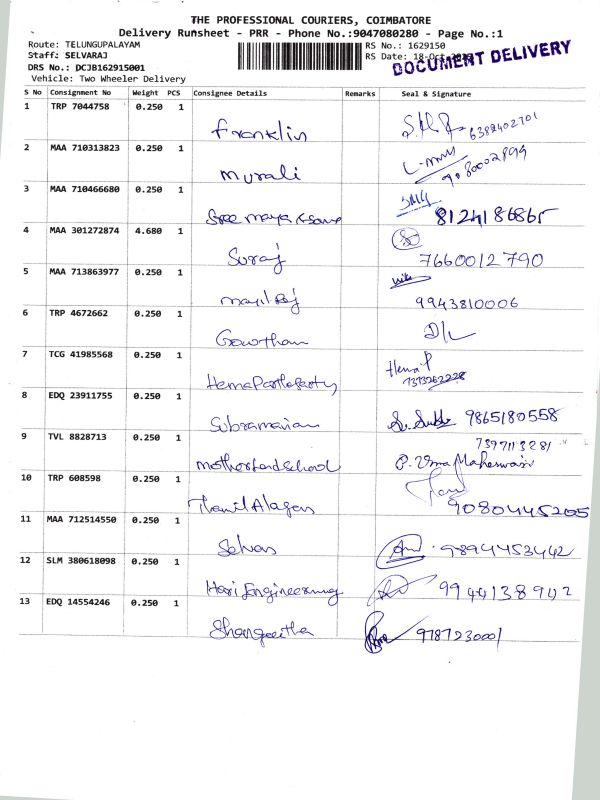 THE PROFESSIONAL COURIERS, COIMBATORE
Delivery Runsheet - PRR - Phone No.:9047080280 - Page No.:1
Route: TELUNGUPALAYAM RS No.: 1629150
Staff: SELVARAJ RS Date: 18-Oct
DOCUMENT DELIVERY
DRS No.: DCJB162915001
Vehicle: Two Wheeler Delivery
S No Consignment No Weight PCS Consignee Details Remarks Seal & Signature
1 TRP 7044758 0.250 1 Franklin 6382402701
2 MAA 710313823 0.250 1 Murali 9080002899
3 MAA 710466680 0.250 1 8124186865
4 MAA 301272874 4.680 1 Suraj 7660012790
5 MAA 713863977 0.250 1 9943810006
6 TRP 4672662 0.250 1 Gowtham D/L
7 TCG 41985568 0.250 1 HemaParthasarthy Hema P
7373262228
8 EDQ 23911755 0.250 1 Subramanian 9865180558
9 TVL 8828713 0.250 1 Motherlandschool 7397113281
P. Uma Maheswari
10 TRP 608598 0.250 1 ThamilAlagan 9080445205
11 MAA 712514550 0.250 1 Selvas 9894453442
12 SLM 380618098 0.250 1 Hari Engineering 9944138942
13 EDQ 14554246 0.250 1 Shangeetha 9787230001